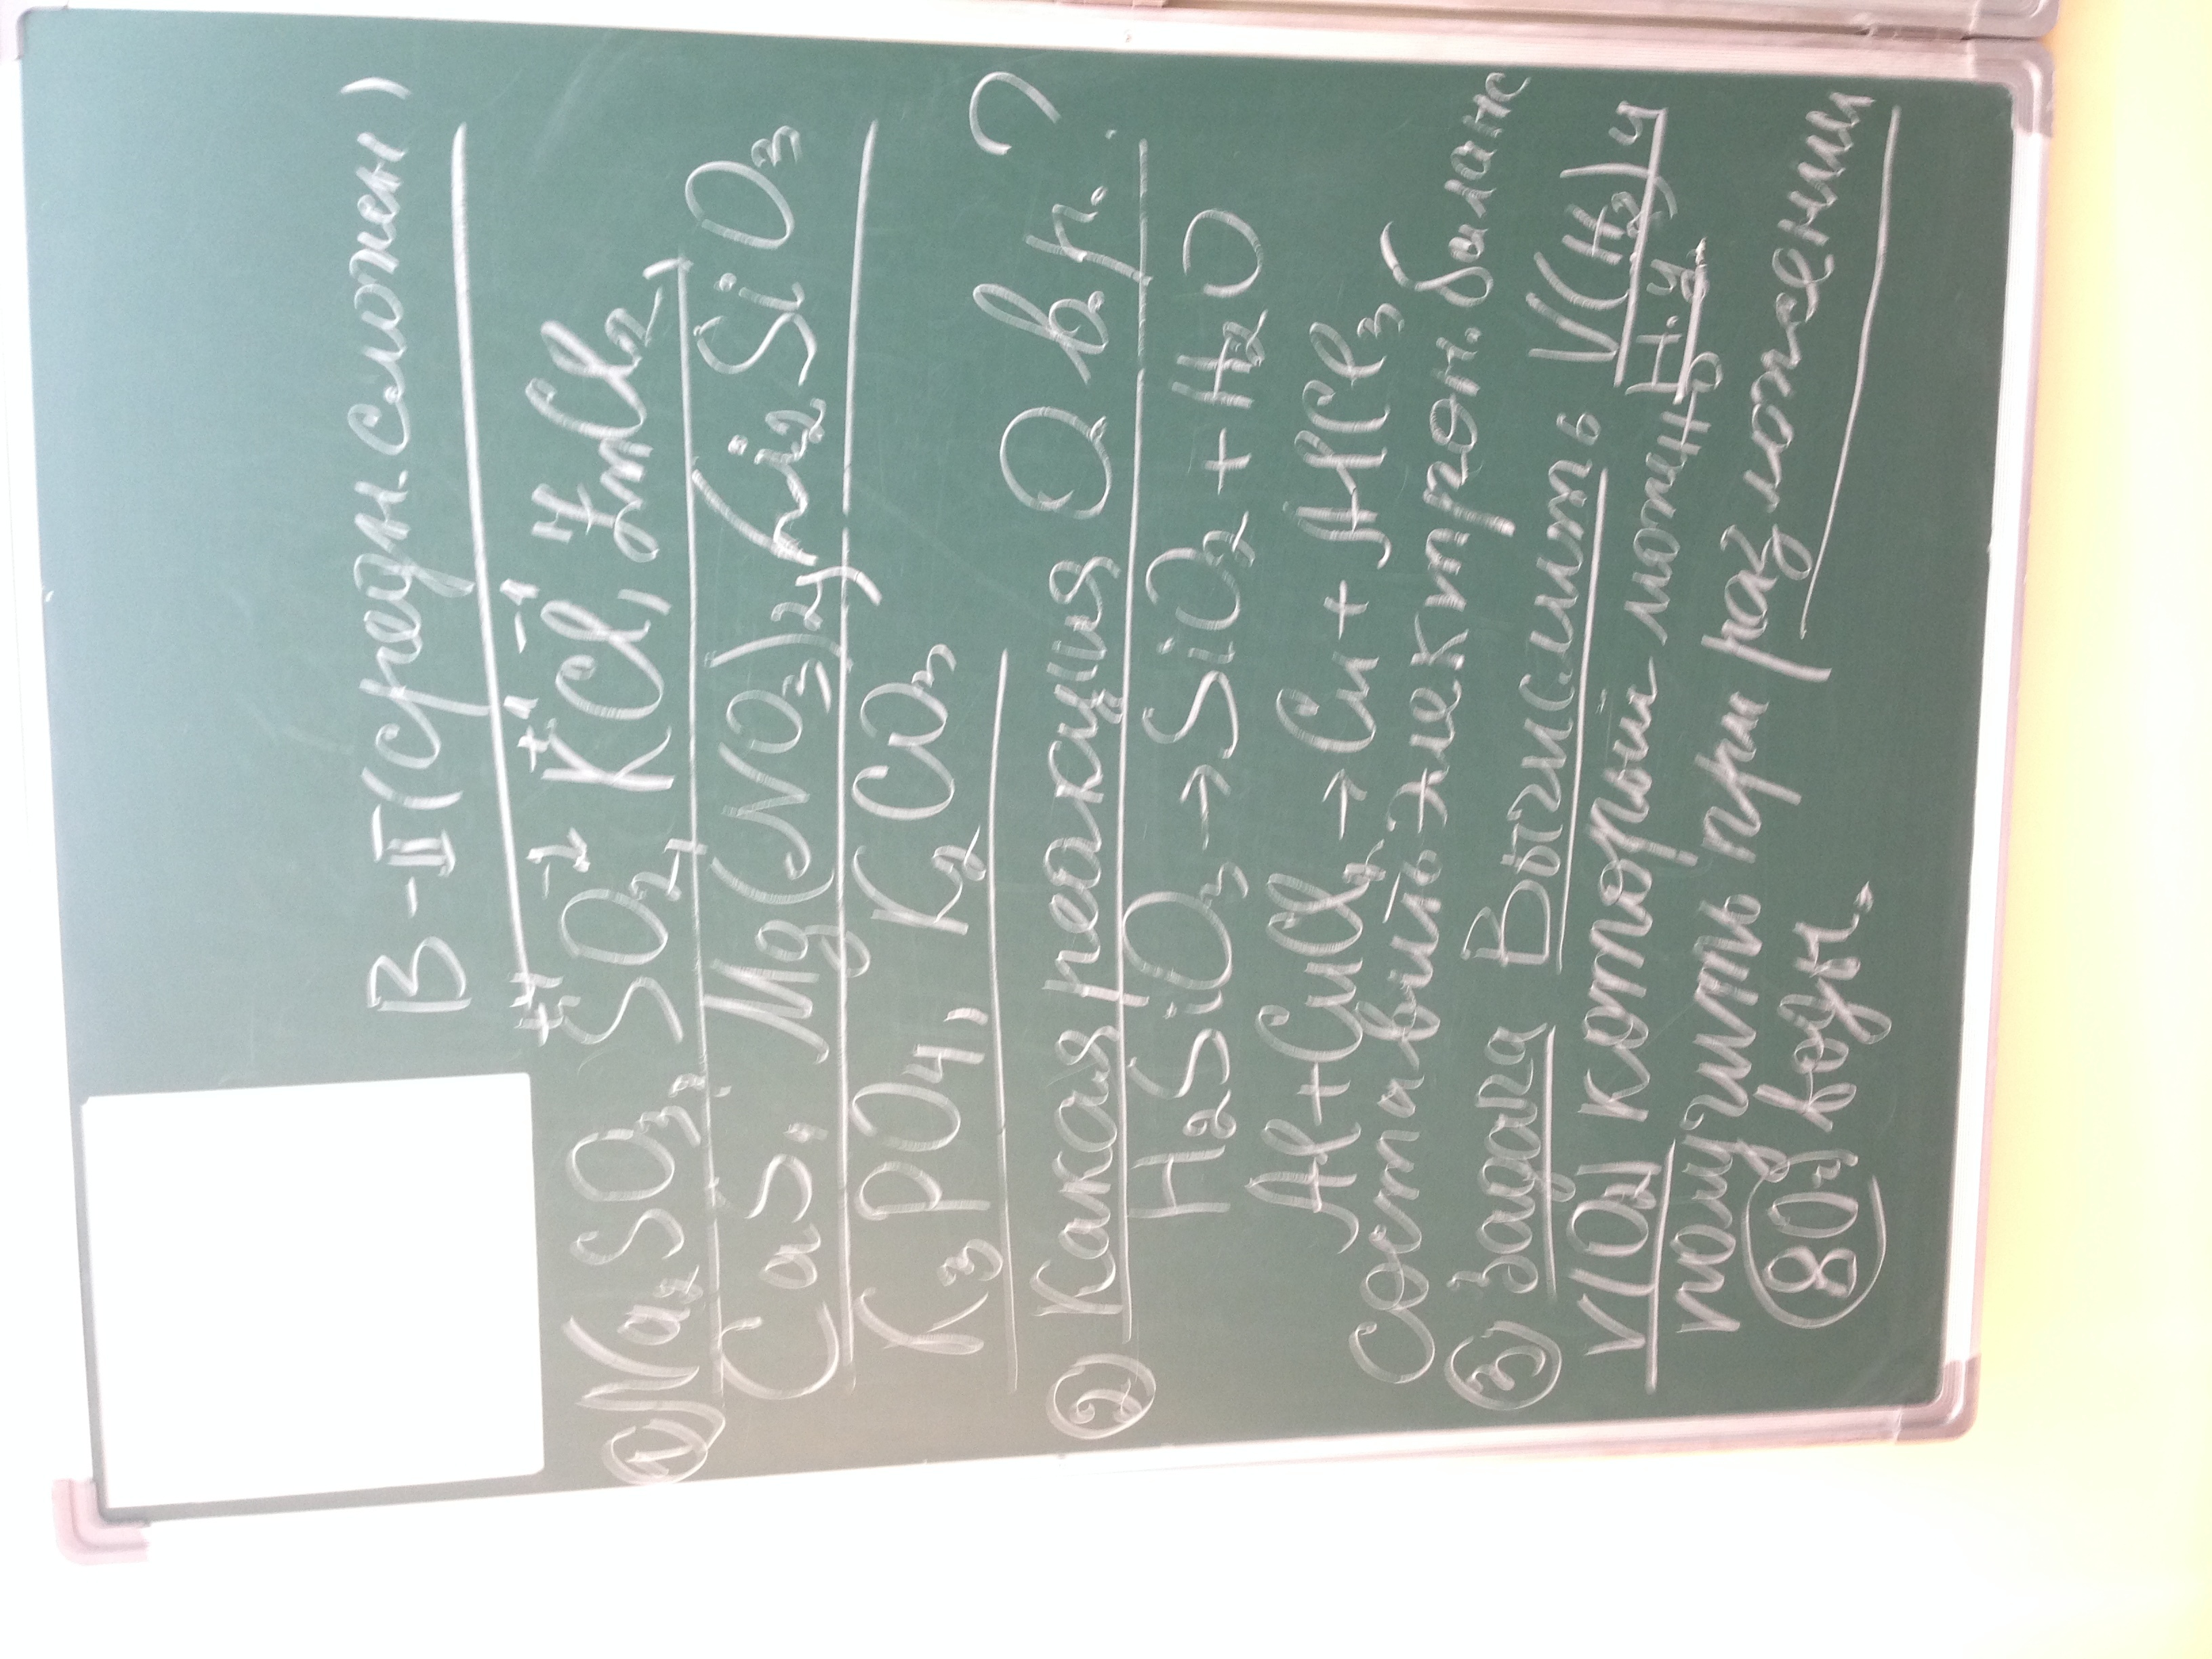 В-II (средн. сложн)
① Na₂SO₃, SO₂, KCl, ZnCl₂,
+4 -2 +1 -1
CaS, Mg(NO₃)₂, Li₂SiO₃
K₃PO₄, K₂CO₃
② Какая реакция О в.р. ?
H₂SiO₃ → SiO₂ + H₂O
Al + CuCl₂ → Cu + AlCl₃
составить электрон. баланс
③ Задача Вычислить V(H₂) и
V(O₂) который можно н.у.
получить при разложении
80г воды.